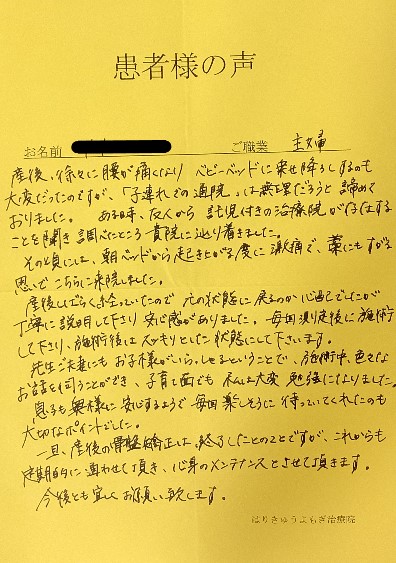 患者様の声
お名前 ご職業 主婦
産後、徐々に腰が痛くなり ベビーベッドに乗せ降ろしするのも
大変だったのですが、「子連れでの通院」は無理だろうと諦めて
おりました。 ある時、友人から 託児付きの治療院が存在する
ことを聞き 調べたところ 貴院に辿り着きました。
その頃にしは、朝ベッドから起き上がる度に激痛で、藁にもすがる
思いで こちらに来院しました。
産後しばらく経っていたので 元の状態に戻るのか心配でしたが
丁寧に説明して下さり 安心感がありました。毎回測定後に施術
して下さり、施術後はスッキリとした状態にして下さいます。
先生ご夫妻にもお子様がいらっしゃるということで、施術中、色々な
お話を伺うことができ、子育て面でも 私は大変 勉強になりました。
息子も奥様に安心するようで毎回楽しそうに待っていてくれたのも
大切なポイントでした。
一旦、産後の骨盤矯正は、終了したとのことですが、これからも
定期的に通わせて頂き、心身のメンテナンスとさせて頂きます。
今後とも宜しくお願い致します。
はりきゅうよもぎ治療院